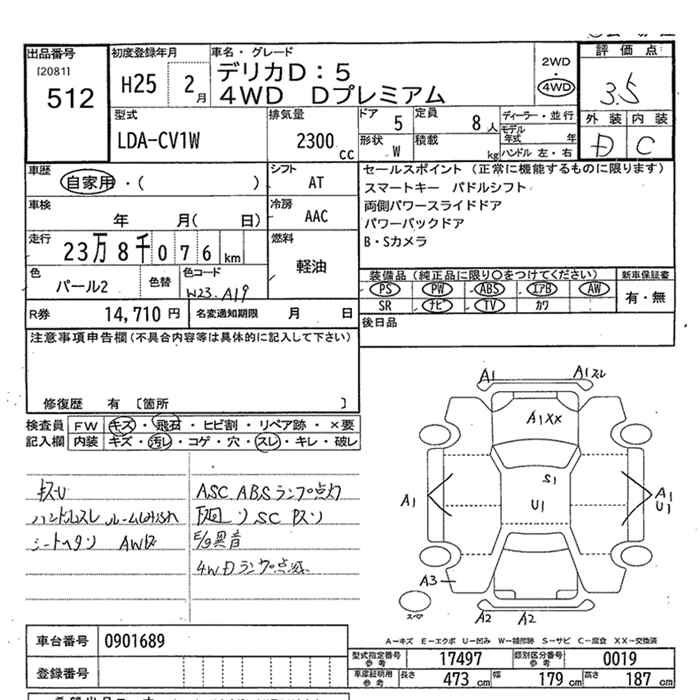 出品番号 初度登録年月 車名・グレード 評価点
[2081] 512 H25 2月 デリカD:5 2WD・4WD 3.5
4WD Dプレミアム 外装 内装
D C
型式 排気量 ドア 定員 ディーラー・並行
LDA-CV1W 2300cc 5 8人 モデル年式 年
形状 W 積載 kg ハンドル 左・右
車歴 シフト セールスポイント (正常に機能するものに限ります)
自家用・( ) AT スマートキー パドルシフト
車検 冷房 両側パワースライドドア
年 月( 日) AAC パワーバックドア
走行 燃料 B・Sカメラ
23万8千076km 軽油
色 色替 色コード 装備品(純正品に限り○をつけてください) 新車保証書
パール2 W23.A19 PS PW ABS エアB AW 有・無
SR ナビ TV カワ
R券 14,710円 名変通知期限 月 日 後日品
注意事項申告欄(不具合内容等は具体的に記入して下さい)
修復歴 有 [箇所 ]
検査員 FW キズ・飛石・ヒビ割・リペア跡・×要
記入欄 内装 キズ・汚レ・コゲ・穴・スレ・キレ・破レ
ASC ABSランプ点灯
E/G異音
4WDランプ点滅
A1 A1スレ
A1XX
S1
U1
A1
A1
U1
A3
スペア
A2 A2
A-キズ E-エクボ U-凹み W-補修跡 S-サビ C-腐食 XX-交換済
車台番号 0901689 型式指定番号参考 17497 類別区分番号参考 0019
登録番号 車庫証明用参考 長さ 473cm 幅 179cm 高さ 187cm